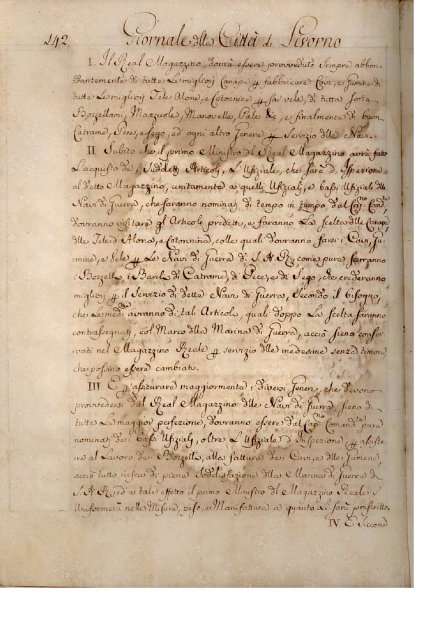 142. Giornale della Città di Livorno
I. Il Real Magazzino, dovrà essere provveduto sempre abbon-
dantemente di tutte Le migliori Canape p fabbricare Cavi, e Jumine di
tutte Le migliori Tele Alone, e Cotonine p far vele, di tutta sorta
Bozzellami, Mazzuole, Manovelle, Pale &c, e finalmente di buon
Catrame, Pece, e sego, ed ogni altro genere p Servizio delle Navi.
II Subito che il primo Ministro del Real Magazzino avrà fatto
L'acquisto de i Suddetti Articoli, L'Ufiziale, che sarà d'Ispezione
al detto Magazzino, unitamente a quelli Ufiziali, e bassi Ufiziali delle
Navi di Guerra, che saranno nominati di tempo in tempo dal Cap.no Com.te
dovranno visitare gli Articoli predetti, e faranno La scelta delle Canape
delle Tele di Alona, e Cotonina, colle quali dovranno farsi i Cavi, Ju-
mine, e Vele p Le Navi di Guerra di S. A. R. come pure sceranno
i Bozzelli, i Barili di Catrame, di Pece, e di Sego, che crederanno
migliori p il Servizio di dette Navi di Guerra, Secondo il bisogno,
che Le med.e avranno di tali Articoli, quali doppo La Scelta saranno
contrassegnati, col Marco della Marina di Guerra, acciò sieno conser-
vati nel Magazzino Reale p servizio delle medesime senza timore
che possino essere cambiati.
III E p assicurare maggiormente i diversi Generi, che devono
provvedersi dal Real Magazzino delle Navi di Guerra sieno di
tutta La maggior perfezione, dovranno essere dal Cap.no Comand.te pure
nominati dei bassi Ufiziali, oltre L'Ufiziale d'Ispezione p assiste-
re al Lavoro dei Bozzelli, alla fattura dei Cavi, e delle Jumine,
acciò tutto riesca di piena Soddisfazione della Marina di Guerra di
S. A. R. ed a tale effetto il primo Ministro del Magazzino Reale si
uniformerà nelle Misure, peso, e Manifattura a quanto Li sarà prescritto.
IV E Siccome